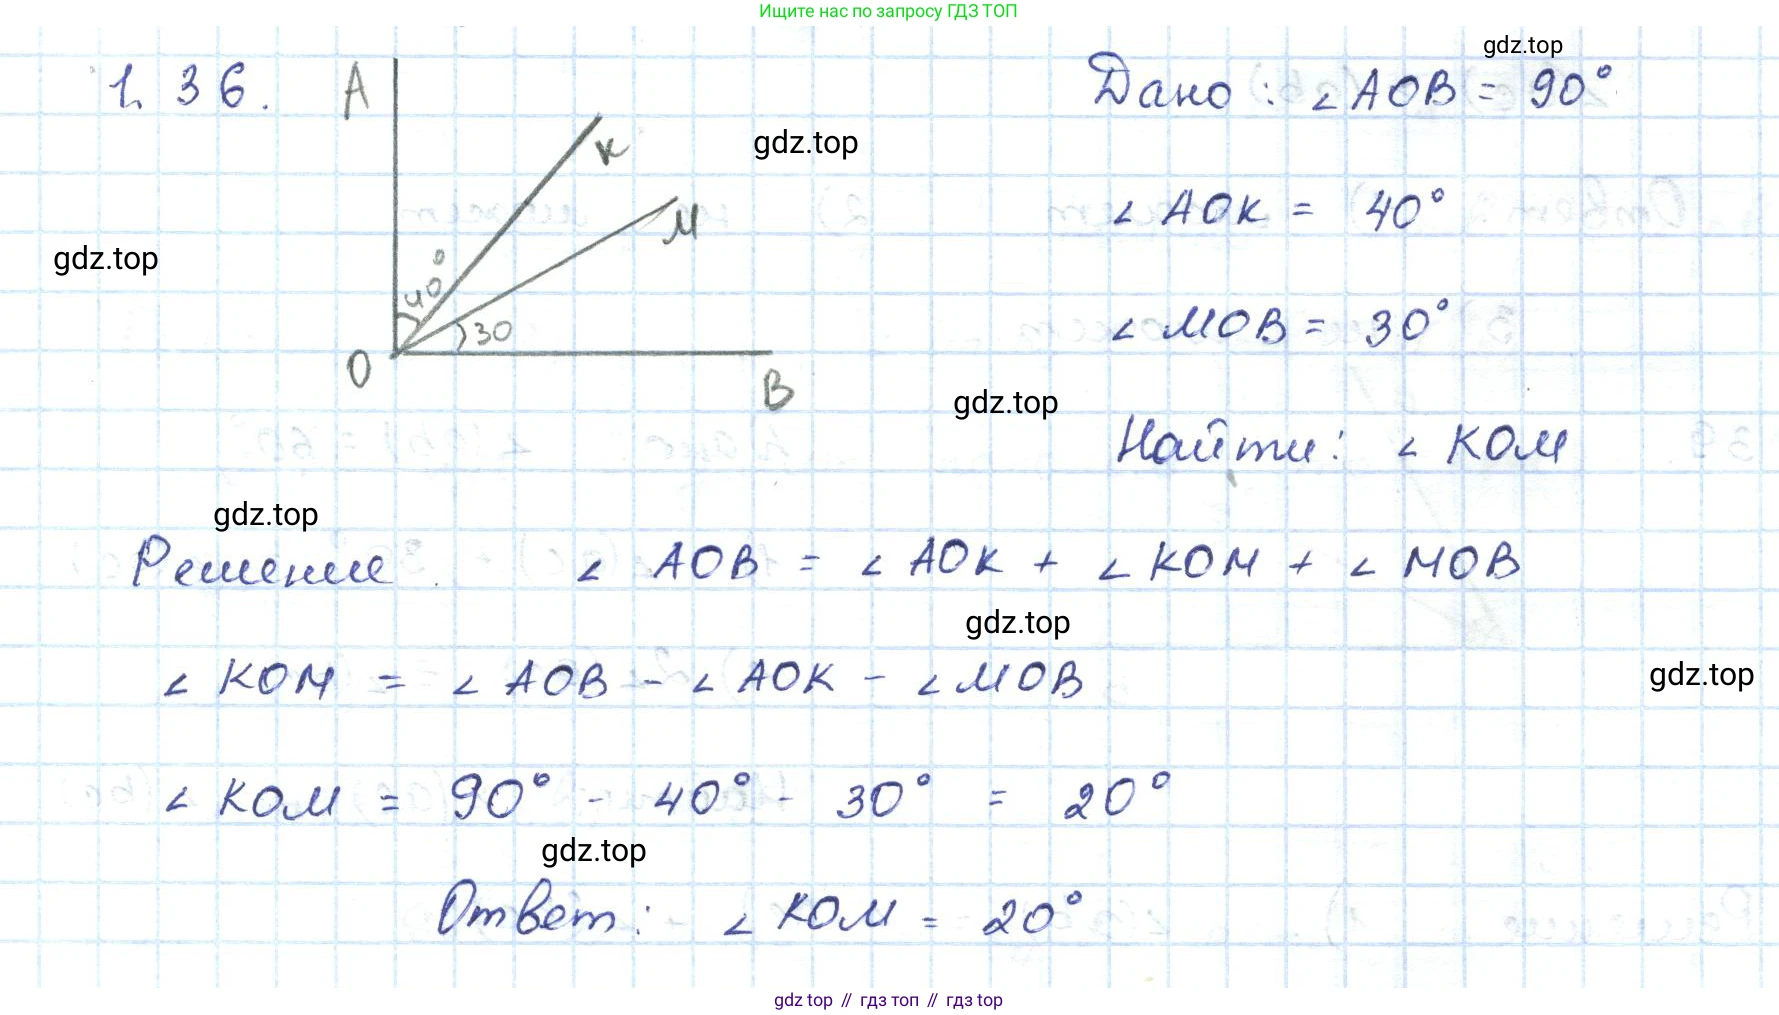 Ищите нас по запросу ГДЗ ТОП
gdz.top
1.36. A
Дано: ∠AOB = 90°
K
gdz.top
M
∠AOK = 40°
gdz.top
40°
30
∠MOB = 30°
O
B
gdz.top
Найти: ∠KOM
gdz.top
Решение ∠AOB = ∠AOK + ∠KOM + ∠MOB
gdz.top
∠KOM = ∠AOB - ∠AOK - ∠MOB
gdz.top
∠KOM = 90° - 40° - 30° = 20°
gdz.top
Ответ: ∠KOM = 20°
gdz top // гдз топ // гдз top